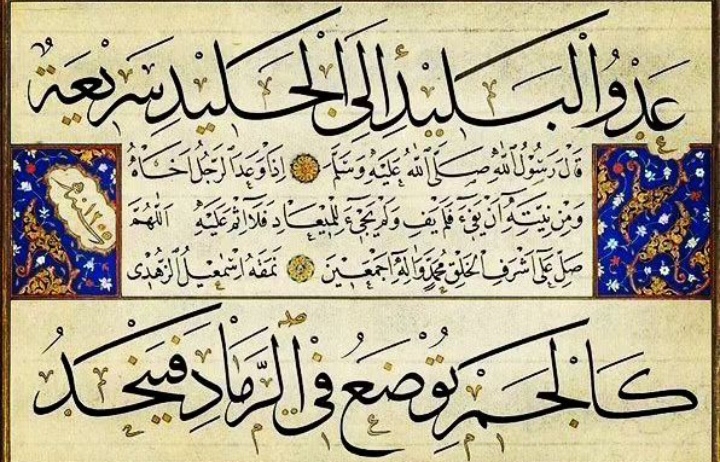 عَدْوُ الْبَلِيدِ اِلَى الْجَلِيدِ سَرِيعَةٌ
قَالَ رَسُولُ اللهِ صَلَّى اللهُ عَلَيْهِ وَسَلَّمَ اِذَا وَعَدَ الرَّجُلُ اَخَاهُ
وَمِنْ نِيَّتِهِ اَنْ يَفِيَ فَلَمْ يَفِ وَلَمْ يَجِئْ لِلْمِيعَادِ فَلَا اِثْمَ عَلَيْهِ اَللّٰهُمَّ
صَلِّ عَلَى اَشْرَفِ الْخَلْقِ مُحَمَّدٍ وَاٰلِهِ اَجْمَعِينَ نَمَقَهُ اِسْمٰعِيلُ الزُّهْدِى
سنه
كَالْجَمْرِ تُوضَعُ فِى الرَّمَادِ فَيَخْمَدُ